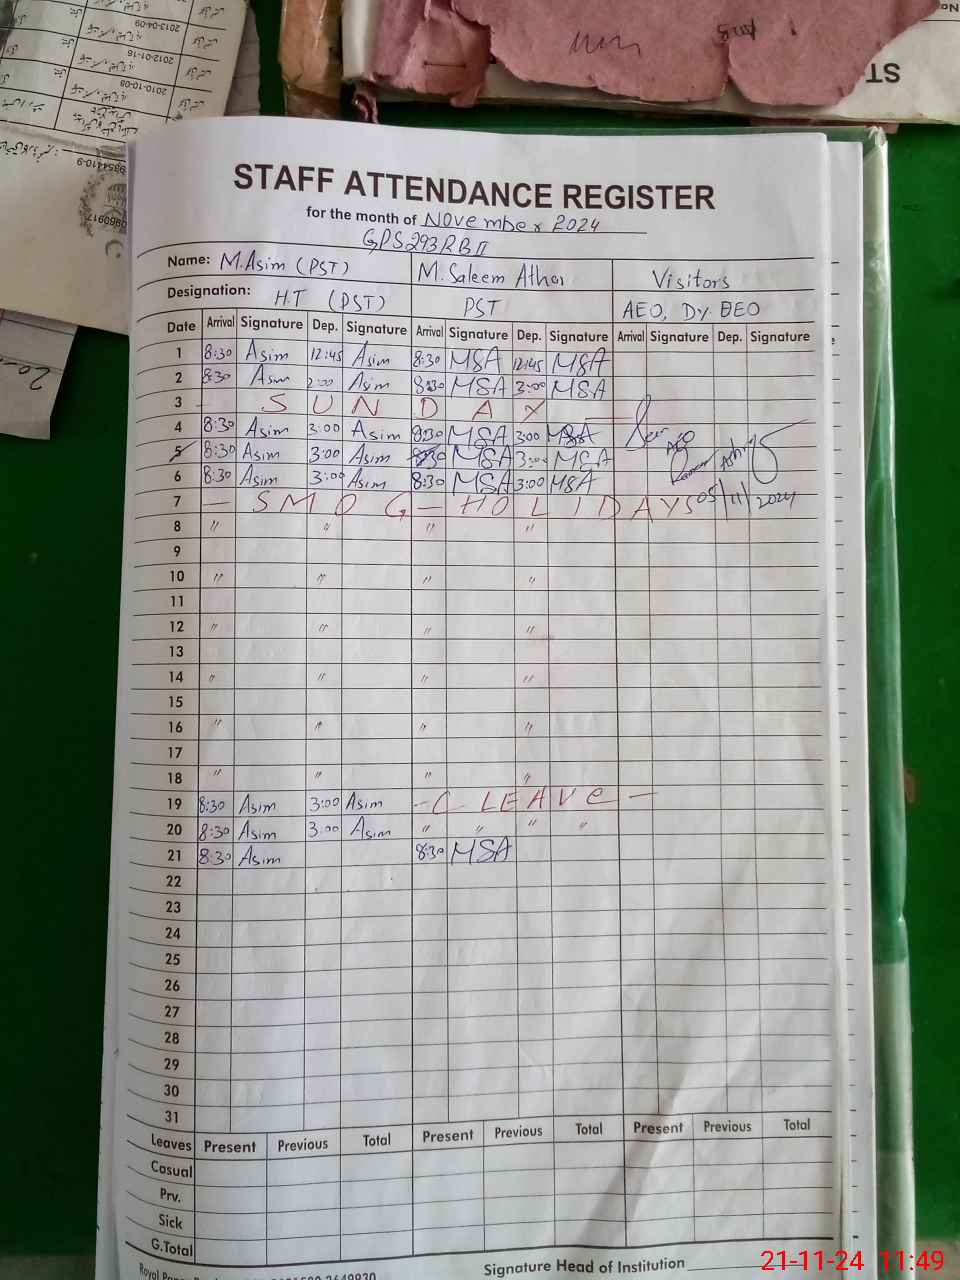 2013-04-09
2012-01-16
2010-10-08
ST
STAFF ATTENDANCE REGISTER
for the month of November 2024
GPS 293 RB II
Name: M.Asim (PST) M. Saleem Athar Visitors
Designation: H.T (PST) PST AEO, Dy. DEO
Date Arrival Signature Dep. Signature Arrival Signature Dep. Signature Arrival Signature Dep. Signature
1 8:30 Asim 12:45 Asim 8:30 MSA 12:45 MSA
2 8:30 Asim 2:00 Asim 8:30 MSA 3:00 MSA
3 SUNDAY
4 8:30 Asim 3:00 Asim 8:30 MSA 3:00 MSA
5 8:30 Asim 3:00 Asim 8:30 MSA 3:00 MSA AEO
6 8:30 Asim 3:00 Asim 8:30 MSA 3:00 MSA
7 - SMOG - HOLIDAYS 05/11/2024
8 " " " "
9
10 " " " "
11
12 " " " "
13
14 " " " "
15
16 " " " "
17
18 " " " "
19 8:30 Asim 3:00 Asim - C LEAVE -
20 8:30 Asim 3:00 Asim " " " "
21 8:30 Asim 8:30 MSA
22
23
24
25
26
27
28
29
30
31
Leaves Present Previous Total Present Previous Total Present Previous Total
Casual
Prv.
Sick
G.Total
Signature Head of Institution
21-11-24 11:49